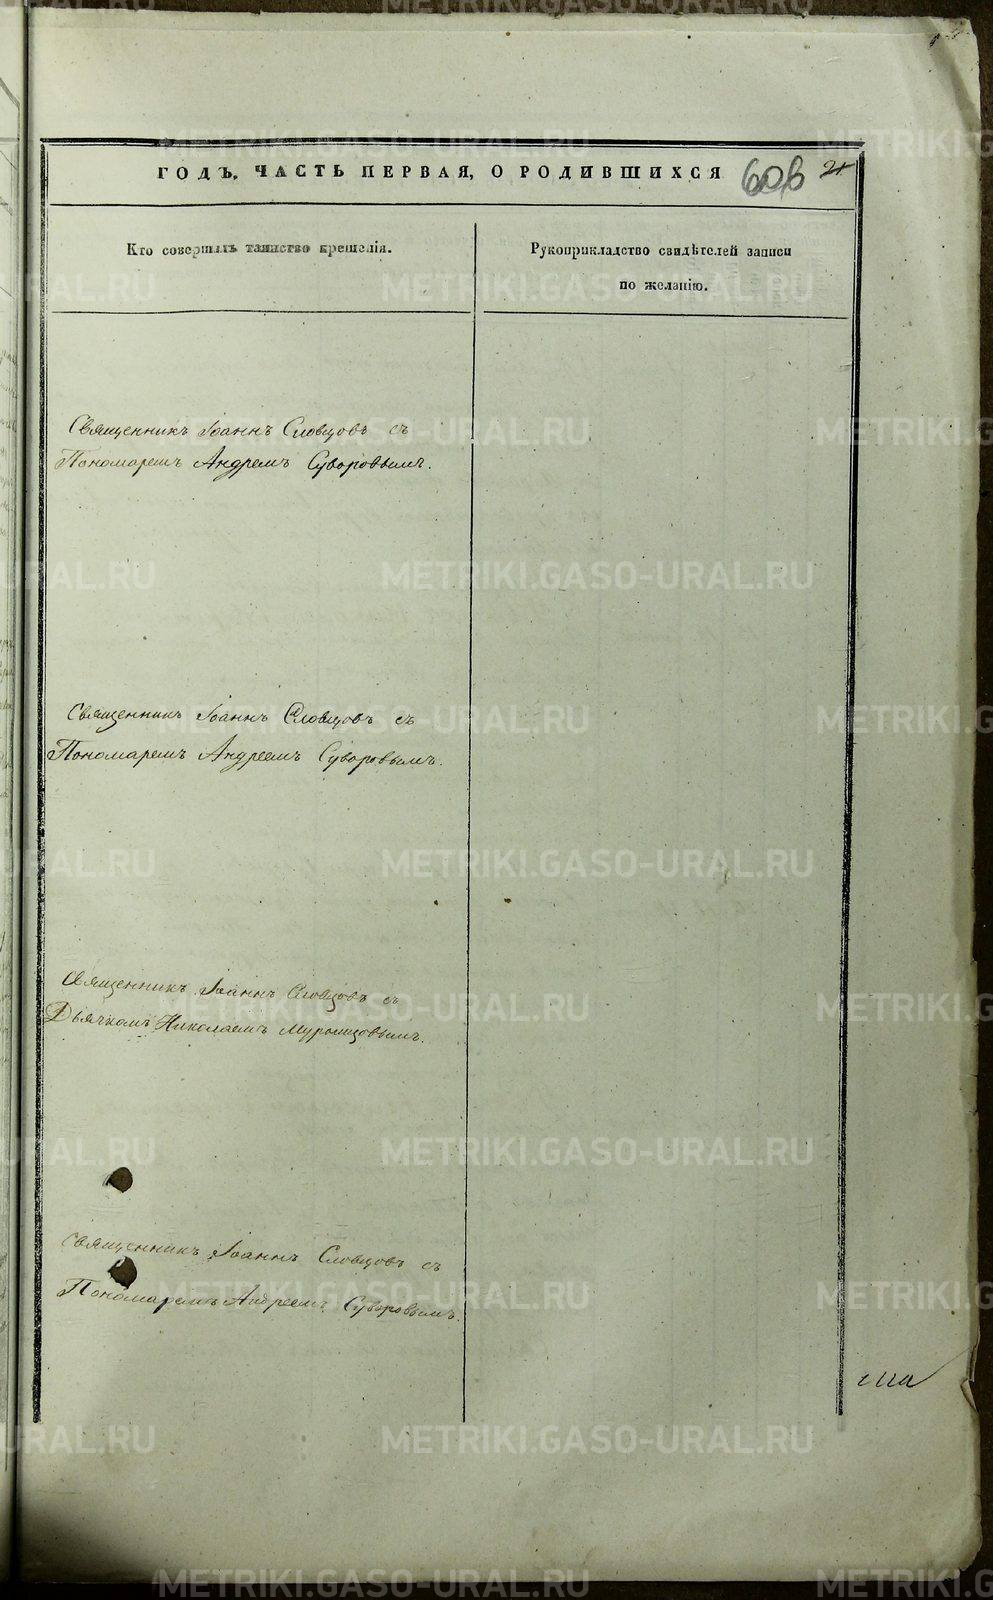 ГОДЪ, ЧАСТЬ ПЕРВАЯ, О РОДИВШИХСЯ
606
21
Кто совершалъ таинство крещенія.
Рукоприкладство свидѣтелей записи
по желанію.
Священникъ Іоаннъ Словцовъ съ
Пономаремъ Андреемъ Суворовымъ.
Священникъ Іоаннъ Словцовъ съ
Пономаремъ Андреемъ Суворовымъ.
Священникъ Іоаннъ Словцовъ съ
Дьячкомъ Николаемъ Мурзинцовымъ.
Священникъ Іоаннъ Словцовъ съ
Пономаремъ Андреемъ Суворовымъ.
METRIKI.GASO-URAL.RU